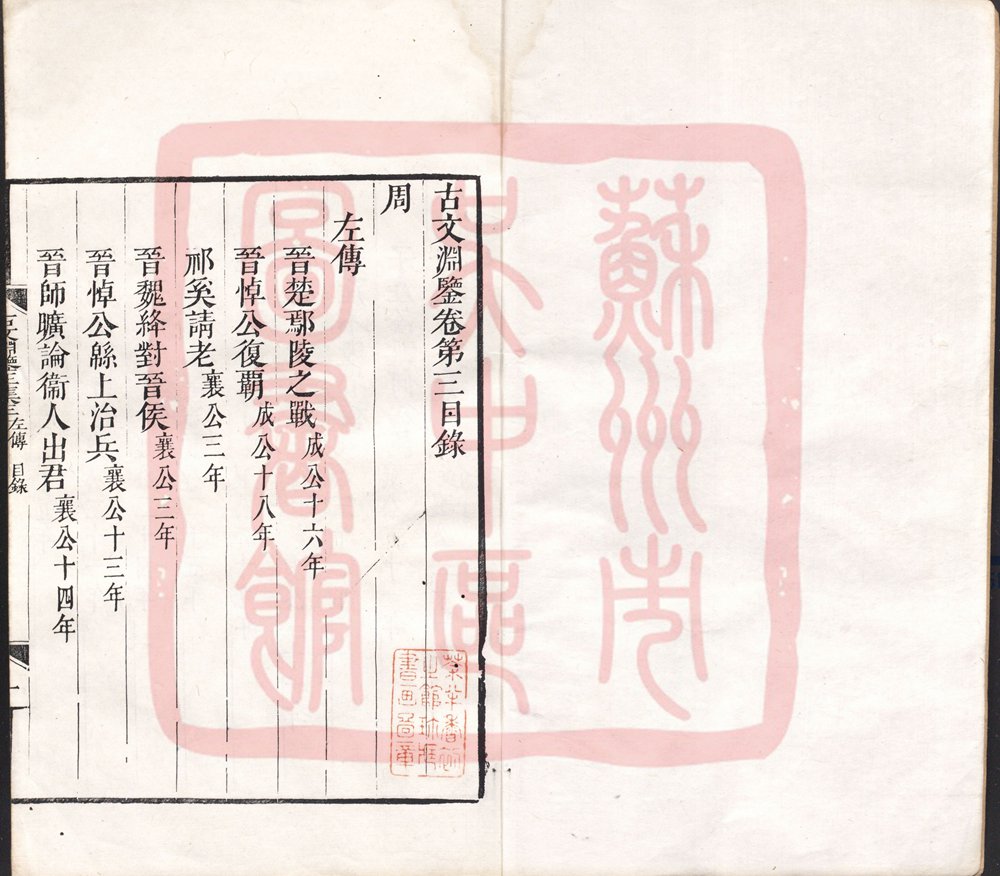 古文淵鑒卷第三目錄
周
左傳
晉楚鄢陵之戰成公十六年
晉悼公復覇成公十八年
祁奚請老襄公三年
晉魏絳對晉侯襄公三年
晉悼公緜上治兵襄公十三年
晉師曠論衞人出君襄公十四年
左傳 目錄
蘇州市
吳中區
圖書館